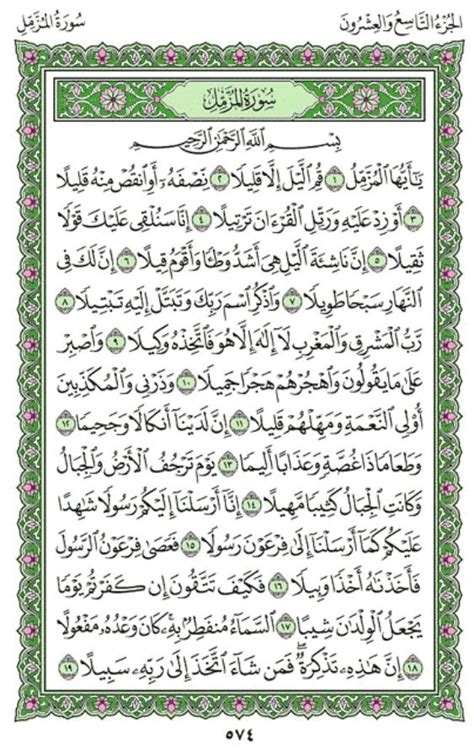 الجزء التاسع والعشرون
سورة المزمل
سورة المزمل
بسم الله الرحمن الرحيم
يَٰٓأَيُّهَا ٱلْمُزَّمِّلُ ١ قُمِ ٱلَّيْلَ إِلَّا قَلِيلًا ٢ نِّصْفَهُۥٓ أَوِ ٱنقُصْ مِنْهُ قَلِيلًا
٣ أَوْ زِدْ عَلَيْهِ وَرَتِّلِ ٱلْقُرْءَانَ تَرْتِيلًا ٤ إِنَّا سَنُلْقِى عَلَيْكَ قَوْلًا
ثَقِيلًا ٥ إِنَّ نَاشِئَةَ ٱلَّيْلِ هِىَ أَشَدُّ وَطْـًٔا وَأَقْوَمُ قِيلًا ٦ إِنَّ لَكَ فِى
ٱلنَّهَارِ سَبْحًا طَوِيلًا ٧ وَٱذْكُرِ ٱسْمَ رَبِّكَ وَتَبَتَّلْ إِلَيْهِ تَبْتِيلًا ٨
رَّبُّ ٱلْمَشْرِقِ وَٱلْمَغْرِبِ لَآ إِلَٰهَ إِلَّا هُوَ فَٱتَّخِذْهُ وَكِيلًا ٩ وَٱصْبِرْ
عَلَىٰ مَا يَقُولُونَ وَٱهْجُرْهُمْ هَجْرًا جَمِيلًا ١٠ وَذَرْنِى وَٱلْمُكَذِّبِينَ
أُو۟لِى ٱلنَّعْمَةِ وَمَهِّلْهُمْ قَلِيلًا ١١ إِنَّ لَدَيْنَآ أَنكَالًا وَجَحِيمًا ١٢
وَطَعَامًا ذَا غُصَّةٍ وَعَذَابًا أَلِيمًا ١٣ يَوْمَ تَرْجُفُ ٱلْأَرْضُ وَٱلْجِبَالُ
وَكَانَتِ ٱلْجِبَالُ كَثِيبًا مَّهِيلًا ١٤ إِنَّآ أَرْسَلْنَآ إِلَيْكُمْ رَسُولًا شَٰهِدًا
عَلَيْكُمْ كَمَآ أَرْسَلْنَآ إِلَىٰ فِرْعَوْنَ رَسُولًا ١٥ فَعَصَىٰ فِرْعَوْنُ ٱلرَّسُولَ
فَأَخَذْنَٰهُ أَخْذًا وَبِيلًا ١٦ فَكَيْفَ تَتَّقُونَ إِن كَفَرْتُمْ يَوْمًا
يَجْعَلُ ٱلْوِلْدَٰنَ شِيبًا ١٧ ٱلسَّمَآءُ مُنفَطِرٌۢ بِهِۦ كَانَ وَعْدُهُۥ مَفْعُولًا
١٨ إِنَّ هَٰذِهِۦ تَذْكِرَةٌ فَمَن شَآءَ ٱتَّخَذَ إِلَىٰ رَبِّهِۦ سَبِيلًا ١٩
٥٧٤